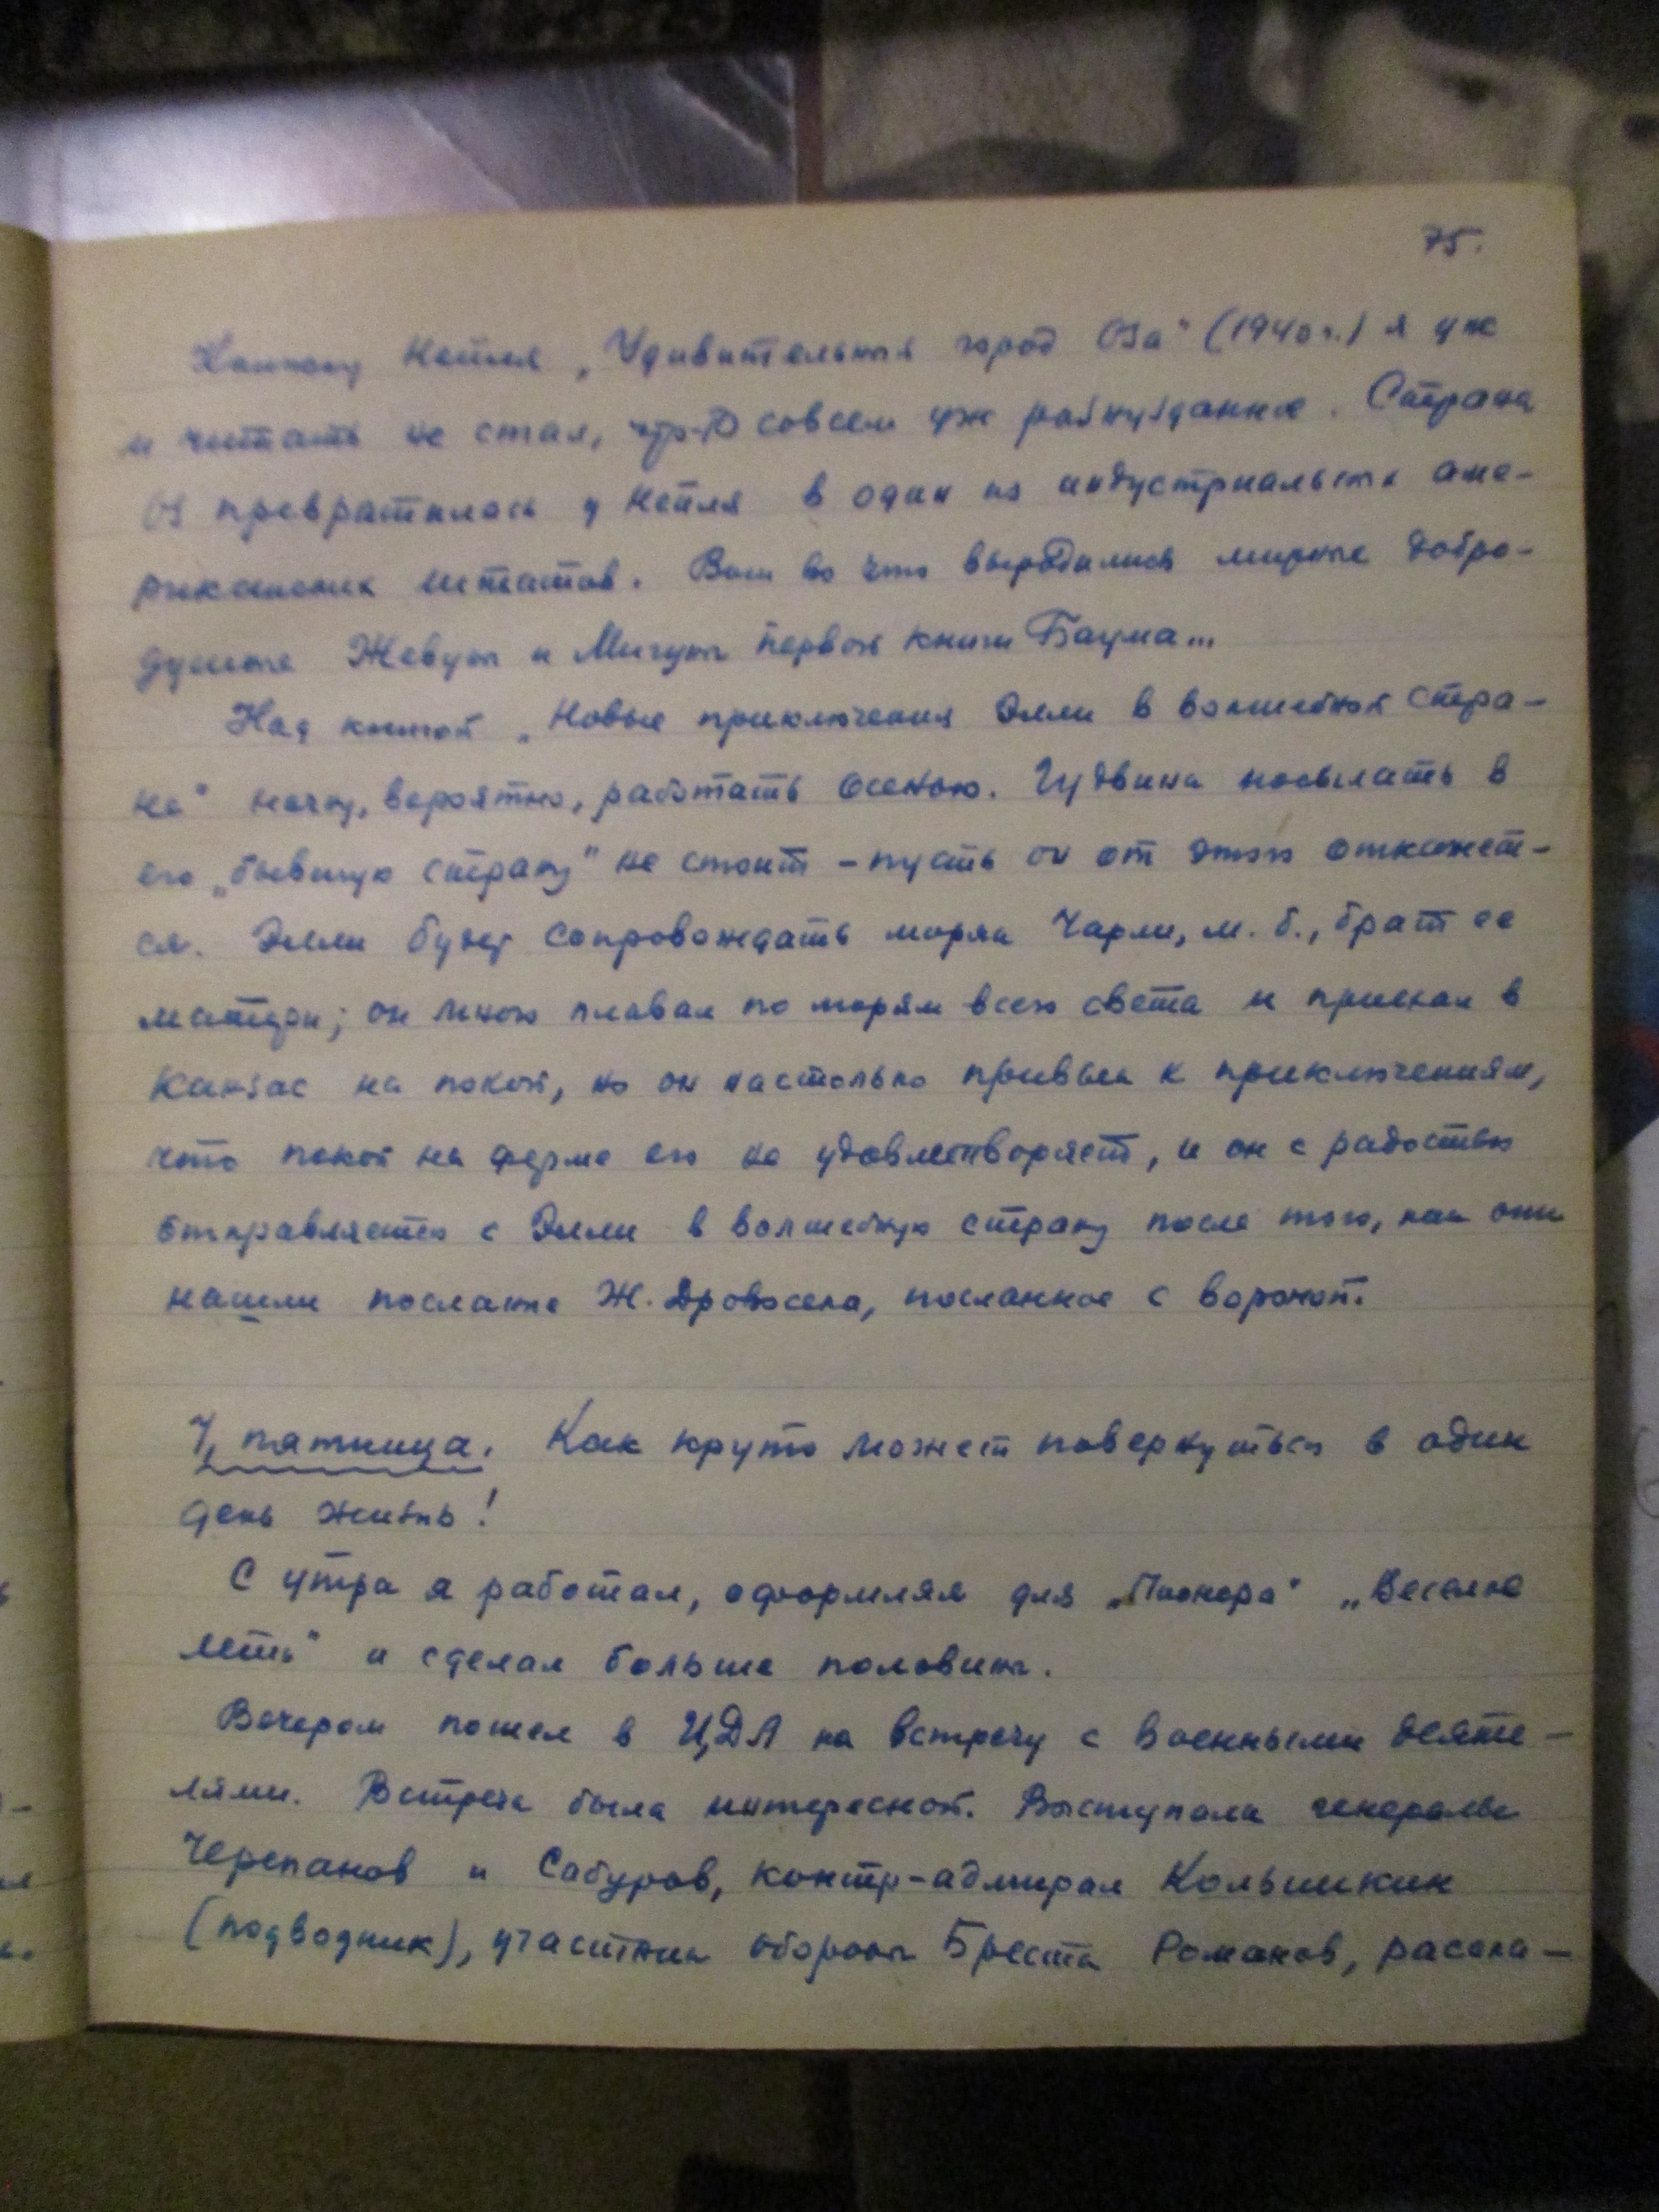 75.
Книжку Нейля „Удивительный город Оза" (1940 г.) я уже
и читать не стал, что-то совсем уж разнузданное. Страна
Оз превратилась у Нейля в один из индустриальных аме-
риканских штатов. Вот во что выродились мирные добро-
душные Жевуны и Мигуны первой книги Баума...
Над книгой „Новые приключения Элли в волшебной стра-
не" начну, вероятно, работать осенью. Гудвина посылать в
его „бывшую страну" не стоит – пусть он от этого откажет-
ся. Элли будет сопровождать моряк Чарли, м. б., брат ее
матери; он много плавал по морям всего света и приехал в
Канзас на покой, но он настолько привык к приключениям,
что покой на ферме его не удовлетворяет, и он с радостью
отправляется с Элли в волшебную страну после того, как они
нашли послание Ж. Дровосека, посланное с вороной.
7, пятница. Как круто может повернуться в один
день жизнь!
С утра я работал, оформлял для „Пионера" „Веселые
лет" и сделал больше половины.
Вечером пошел в ЦДЛ на встречу с военными деяте-
лями. Встреча была интересной. Выступали генералы
Черепанов и Сабуров, контр-адмирал Колышкин
(подводник), участник обороны Бреста Романов, расска-